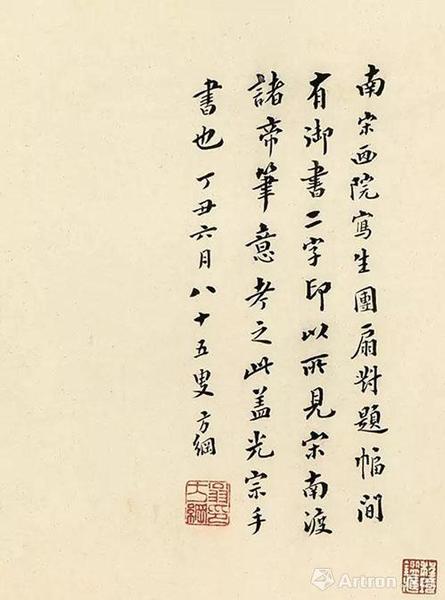 南宋画院寫生團扇對題幅間
有御書二字印以所見宋南渡
諸帝筆意考之此蓋光宗手
書也 丁丑六月八十五叟 方綱
翁方綱
Artron.Net